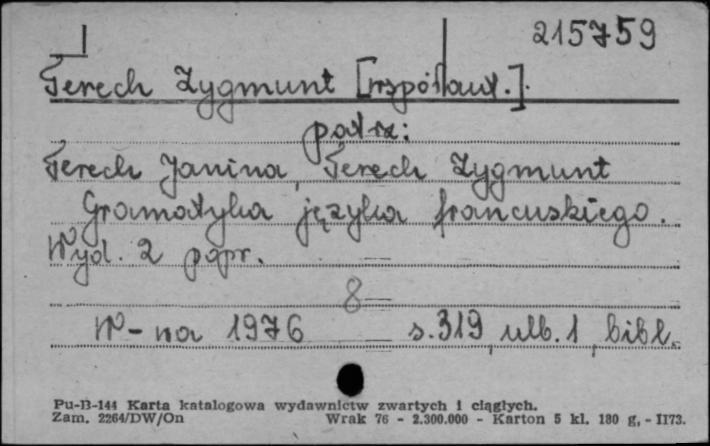 215759
Terech Zygmunt [współaut.].
patrz:
Terech Janina, Terech Zygmunt
Gramatyka języka francuskiego.
Wyd. 2 popr.
8
W-wa 1976 s. 319, ulb. 1, bibl.
Pu-B-144 Karta katalogowa wydawnictw zwartych i ciągłych.
Zam. 2264/DW/On Wrak 76 - 2.300.000 - Karton 5 kl. 180 g, - II73.